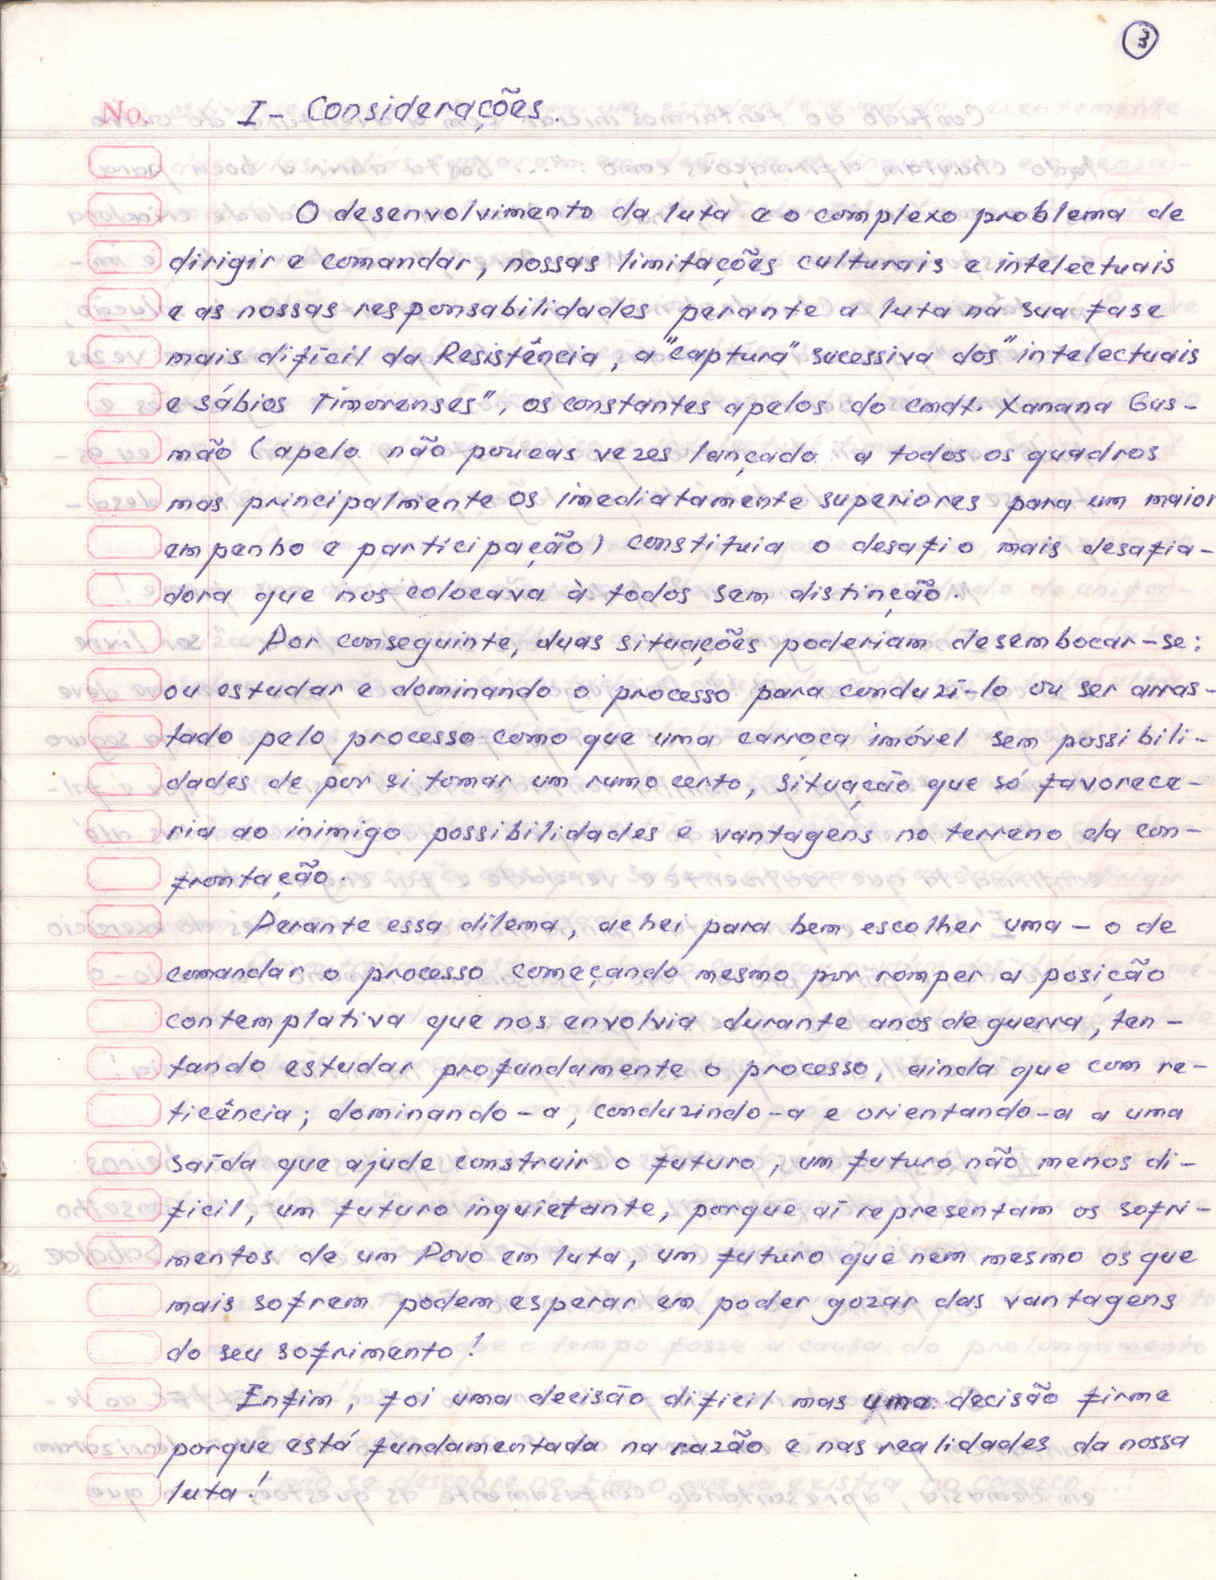 3
No. I - Considerações.
O desenvolvimento da luta e o complexo problema de
dirigir e comandar, nossas limitações culturais e intelectuais
e as nossas responsabilidades perante a luta na sua fase
mais difícil da Resistência, a "captura" sucessiva dos "intelectuais
e sábios Timorenses", os constantes apelos do cmdt. Xanana Gus-
mão (apelo não poucas vezes lançado a todos os quadros
mas principalmente os imediatamente superiores para um maior
empenho e participação) constituia o desafio mais desafia-
dora que nos colocava à todos sem distinção.
Por conseguinte, duas situações poderiam desembocar-se:
ou estudar e dominando o processo para conduzí-lo ou ser arras-
tado pelo processo como que uma carroça imóvel sem possibili-
dades de por si tomar um rumo certo, situação que só favorece-
ria ao inimigo possibilidades e vantagens no terreno da con-
frontação.
Perante essa dilema, achei para bem escolher uma - o de
comandar o processo começando mesmo por romper a posição
contemplativa que nos envolvia durante anos de guerra, ten-
tando estudar profundamente o processo, ainda que com re-
ticência; dominando-a, conduzindo-a e orientando-a a uma
saída que ajude construir o futuro, um futuro não menos di-
ficil, um futuro inquietante, porque aí representam os sofri-
mentos de um Povo em luta, um futuro que nem mesmo os que
mais sofrem podem esperar em poder gozar das vantagens
do seu sofrimento!
Enfim, foi uma decisão dificil mas uma decisão firme
porque está fundamentada na razão e nas realidades da nossa
luta!